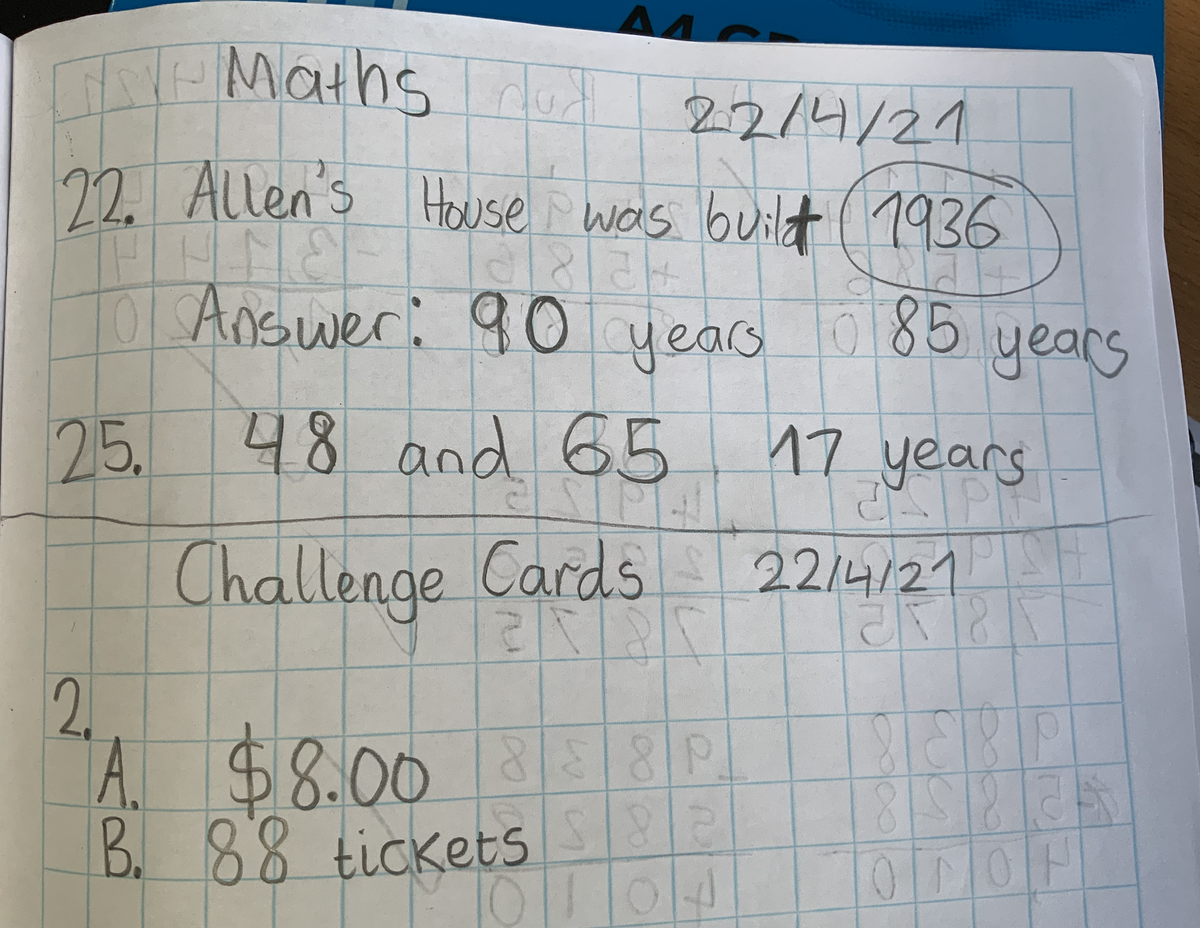 Maths 22/4/21
22. Allen's House was built 1936
Answer: 90 years 85 years
25. 48 and 65 17 years
Challenge Cards 22/4/21
2.
A. $8.00
B. 88 tickets